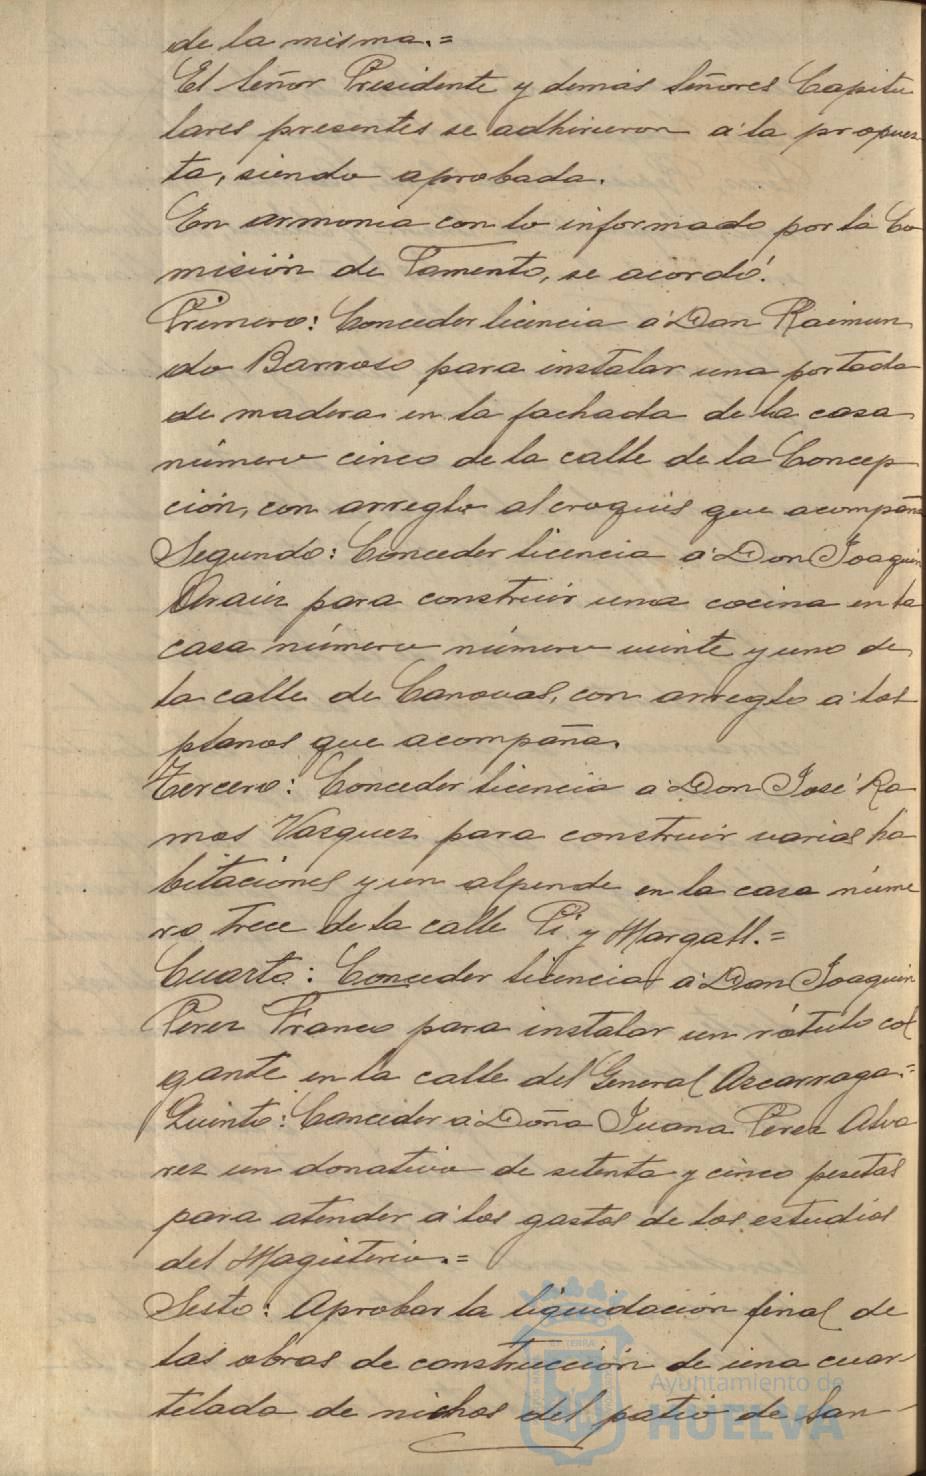 de la misma.=
El Señor Presidente y demás Señores Capitu
lares presentes se adhirieron á la propues
ta, siendo aprobada.
En armonia con lo informado por la Co
misión de Fomento, se acordó:
Primero: Conceder licencia á Don Raimun
do Barroso para instalar una portada
de madera en la fachada de la casa
número cinco de la calle de la Concep
ción, con arreglo al croquis que acompaña
Segundo: Conceder licencia á Don Joaquin
para construir una cocina en la
casa número número veinte y uno de
la calle de Canovas, con arreglo á los
planos que acompaña.
Tercero: Conceder licencia á Don José Ra
mos Vazquez para construir varias ha
bitaciones y un alpende en la casa núme
ro trece de la calle Pi y Margall.=
Cuarto: Conceder licencia á Don Joaquin
Perez Franco para instalar un rótulo col
gante en la calle del General Azcarraga.=
Quinto: Conceder á Doña Juana Perez Alva
rez un donativo de setenta y cinco pesetas
para atender á los gastos de los estudios
del Magisterio.=
Sesto: Aprobar la liquidación final de
las obras de construcción de una cuar
telada de nichos del patio de San
Ayuntamiento de
HUELVA